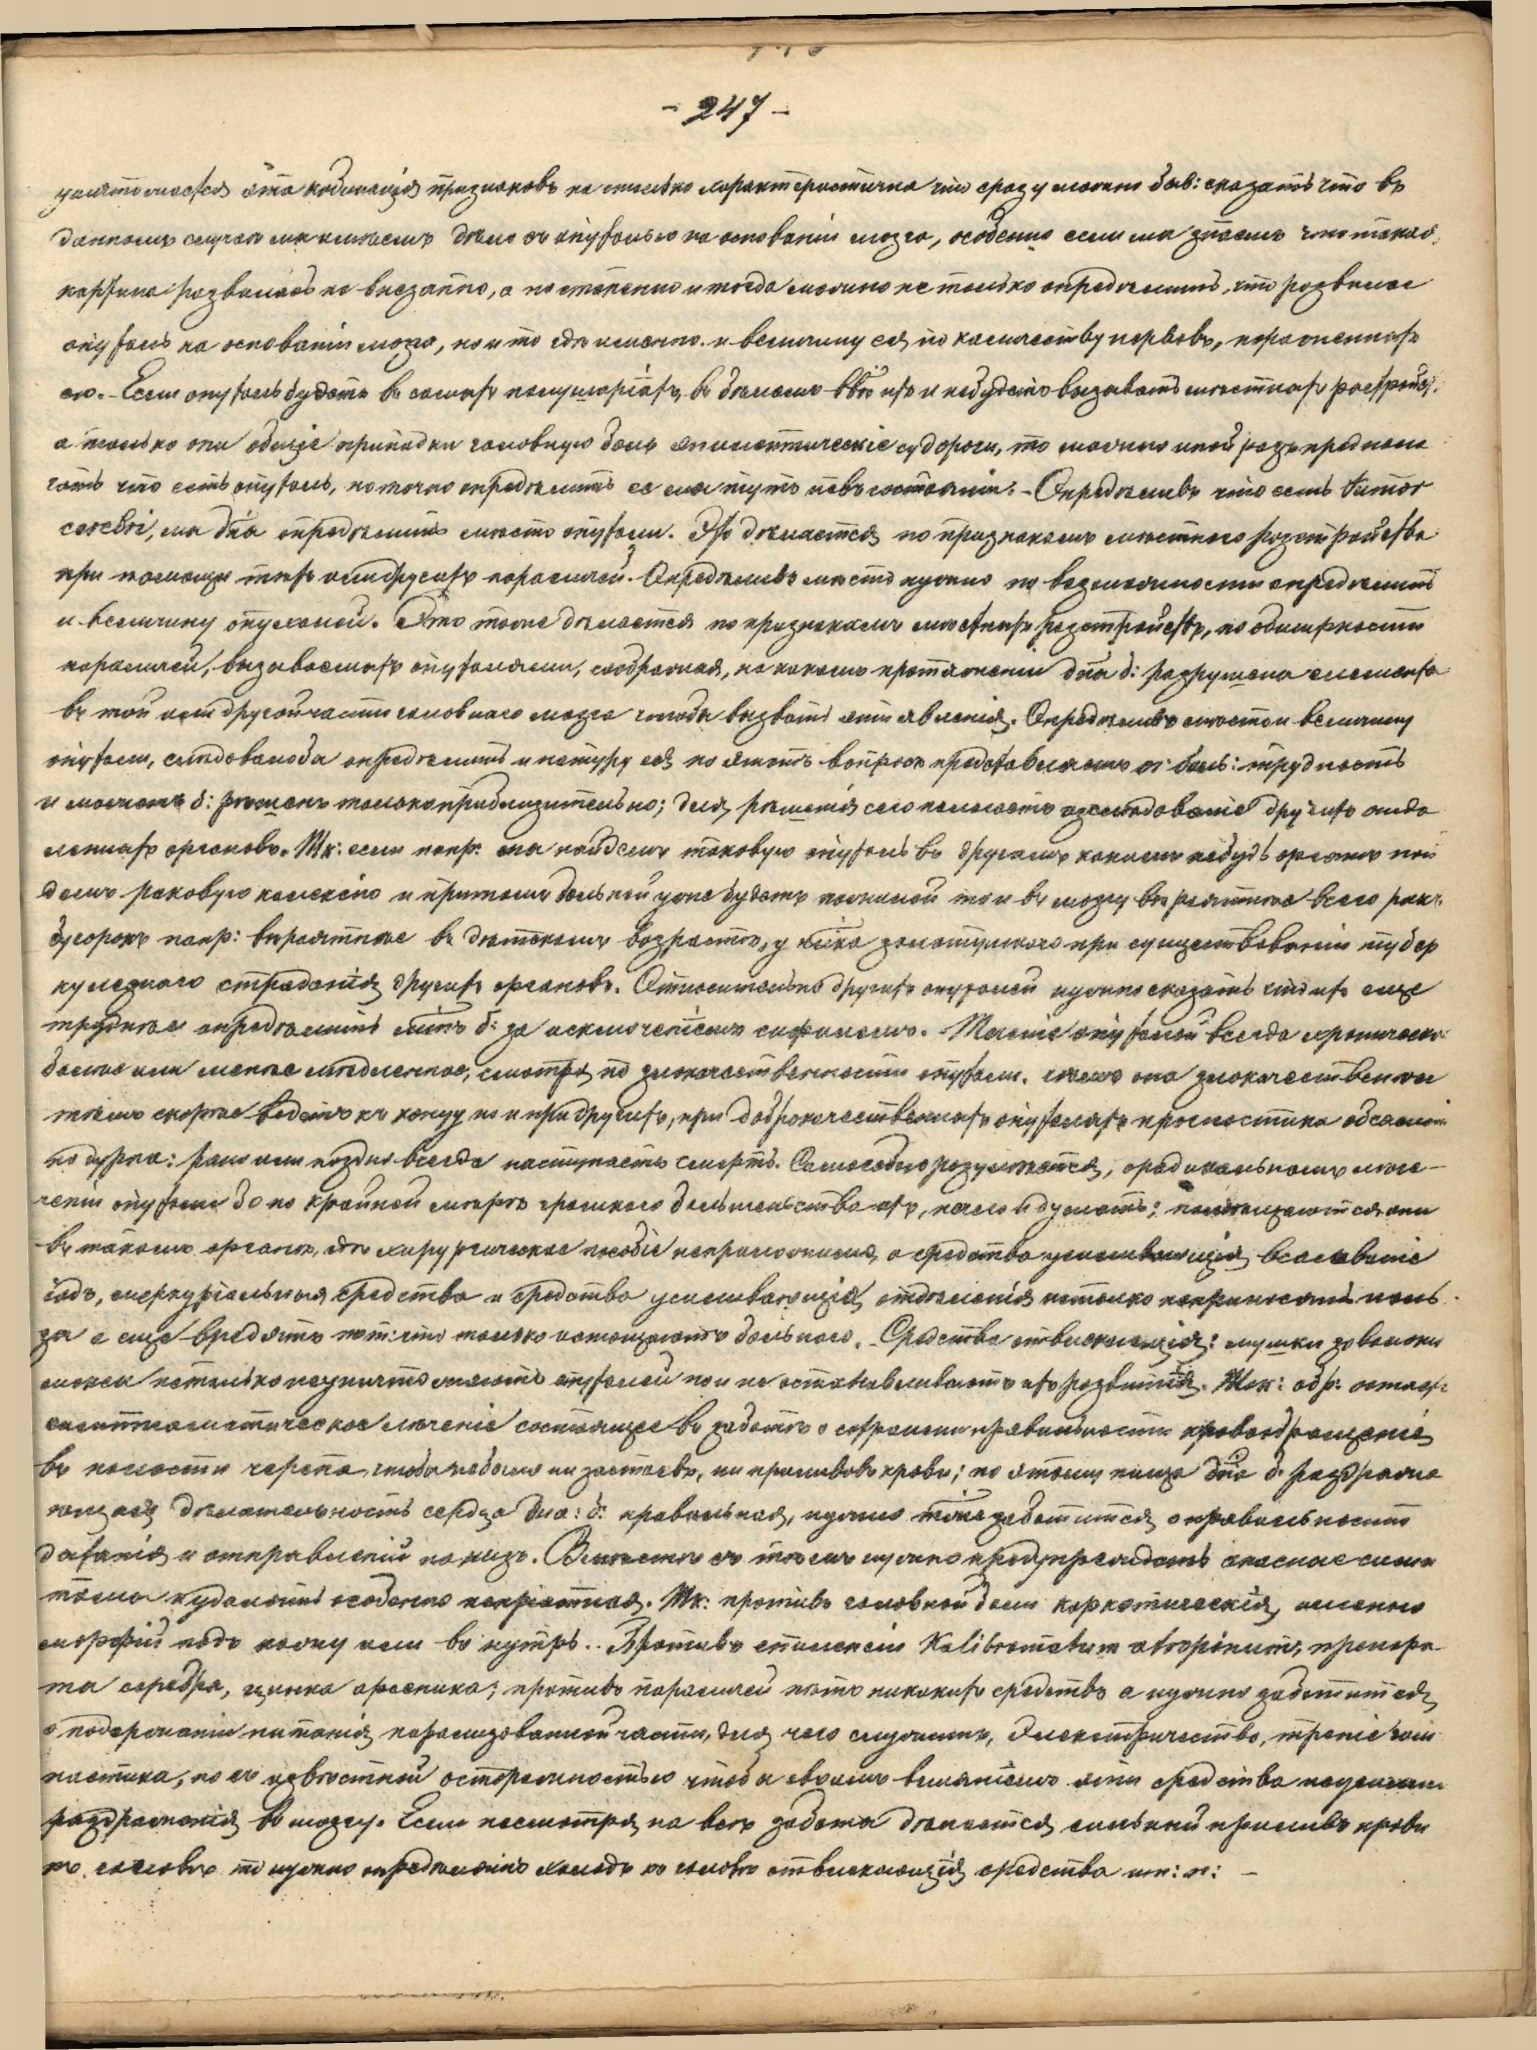 - 247 -
уничтожается эта комбинація признаковъ на столько характеристична что сразу можно быв: сказать что въ
данномъ случаѣ мы имѣемъ дѣло съ опухолью на основаніи мозга, особенно если мы знаемъ что такая
картина развилась не внезапно, а постепенно и тогда можно не только опредѣлить, что развилась
опухоль на основаніи мозга, но и то гдѣ именно и величину ея по количеству нервовъ, пораженныхъ
ею. - Если опухоль будетъ въ самыхъ полушаріяхъ, въ бѣломъ в-вѣ ихъ и не будетъ вызывать мѣстныхъ растрой:
а только одни общіе припадки головную боль эпилептическіе судороги, то можно иной разъ предпола
гать что есть опухоль, но точно опредѣлить ее мы тутъ не въ состояніи. - Опредѣливъ что есть tumor
cerebri, мы дна опредѣлить мѣсто опухоли. Это дѣлается по признакамъ мѣстнаго разстройства
при помощи тѣхъ или другихъ параличей. Опредѣливъ мѣсто нужно по возможности опредѣлить
и величину опухолей. Это тоже дѣлается по признакамъ мѣстныхъ разстройствъ, по обширности
параличей, вызываемыхъ опухолями, соображая, на какомъ протяженіи дна б: разрушена элемента
въ той или другой части головнаго мозга чтобы вызвать эти явленія. Опредѣливъ мѣсто и величину
опухоли, слѣдовало бы опредѣлить и натуру ея но этотъ вопросъ представляетъ оч: боль: трудность
и можетъ б: рѣшенъ только приблизительно; для рѣшенія сего помогаетъ изслѣдованіе другихъ отда
ленныхъ органовъ. Тк: если напр: мы найдемъ таковую опухоль въ другомъ какомъ нибудь органѣ най
демъ раковую кахексію и притомъ больной уже будетъ пожилой то и въ мозгу вѣроятнѣе всего ракъ
бугорокъ напр: вѣроятнѣе въ дѣтскомъ возрастѣ, у золотушнаго при существованіи тубер
кулезнаго страданія другихъ органовъ. Относительно другихъ опухолей нужно сказать что ихъ еще
труднѣе опредѣлить б: за исключеніемъ сифиломъ. - Теченіе опухолей всегда хроническо
болѣе или менѣе медленное, смотря по злокачественности опухоли. чѣмъ она злокачественнѣе
тѣмъ скорѣе ведетъ къ концу но и при другихъ, при доброкачественныхъ опухоляхъ прогностика абсолют
но дурна: рано или поздно всегда наступаетъ смерть. Само собою разумѣется, о радикальномъ лѣче-
ченіи опухоли по крайней мѣрѣ громаднаго большинства ихъ, нечего и думать; помѣщаются они
въ такомъ органѣ, гдѣ хирургическое пособіе непримѣнимо, а средства усиливающія всасываніе
іодъ, меркуріальныя средства и средства усиливающія отдѣленія не только неприносятъ поль
зы а еще вредятъ пот: что только истощаютъ больнаго. - Средства отвлекающія: мушки заволоки
моксы не только не уничтожаютъ опухолей но и не останавливаютъ ихъ развитія. Так: обр: остает:
симптоматическое лѣченіе состоящее въ заботѣ о сохраненіи правильности кровообращенія
въ полости черепа, чтобы не было ни застоевъ, ни приливовъ крови; по этому пища дна б: раздража
ющая дѣятельность сердца дна: б: правильная, нужно тоже заботиться о правильности
дыханія и отправленій на низъ. Вмѣстѣ съ тѣмъ нужно предупреждать опасные симп
томы и удалять особенно непріятные. Тк: противъ головной боли наркотическія, именно
морфій подъ кожу или во внутрь.. Противъ эпилепсіи Kali bromatum atropinum, препара
ты серебра, цинка арсеника; противъ параличей нѣтъ никакихъ средствъ а нужно заботиться
о подержаніи питанія парализованной части, для чего служитъ, электричество, треніе гим
настика, но съ извѣстной осторожностью чтобы своимъ вліяніемъ эти средства не усилили
раздраженія въ мозгу. Если несмотря на всѣ заботы дѣлается сильный приливъ крови
къ головѣ то нужно опредѣлить холодъ на голову отвлекающія средства и т: п: -